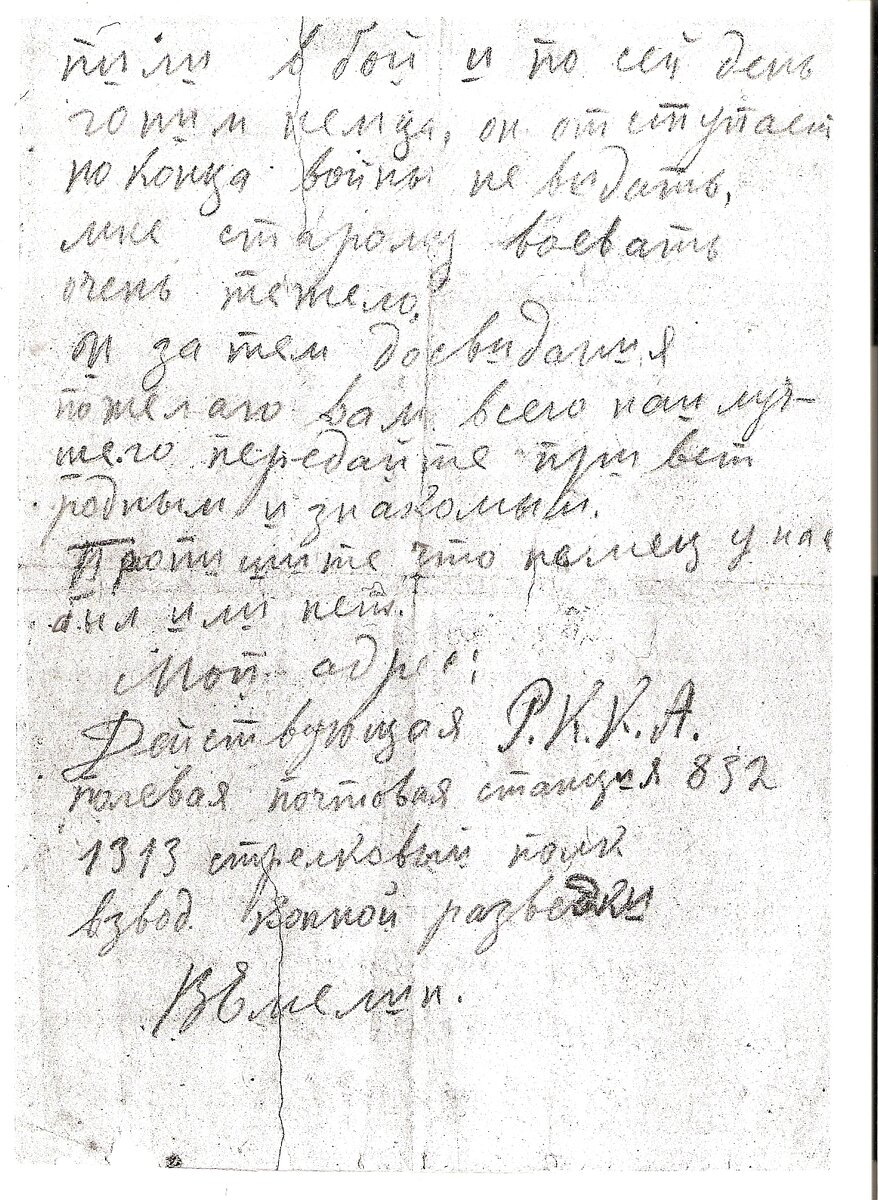 пили в бой и по сей день
гоним немца, он отступает
но конца войны не видать,
мне старому воевать
очень тяжело.
и за тем досвидания
пожелаю вам всего наилуч-
шего передайте привет
родным и знакомым.
Пропишите что немец у нас
был или нет.
Мой адрес:
Действующая Р.К.К.А.
полевая почтовая станция 832
1313 стрелковый полк
взвод конной разведки
ВЕмелин.